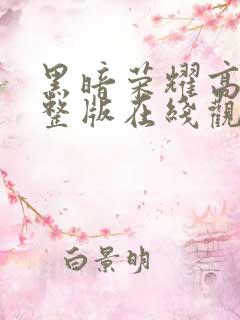 黑暗荣耀高
整版在线觀
白景明